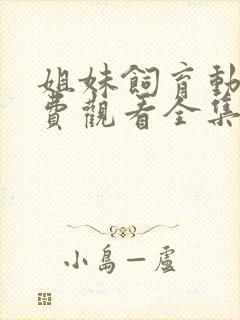 姐妹飼育動
費觀看全集
小島一盧